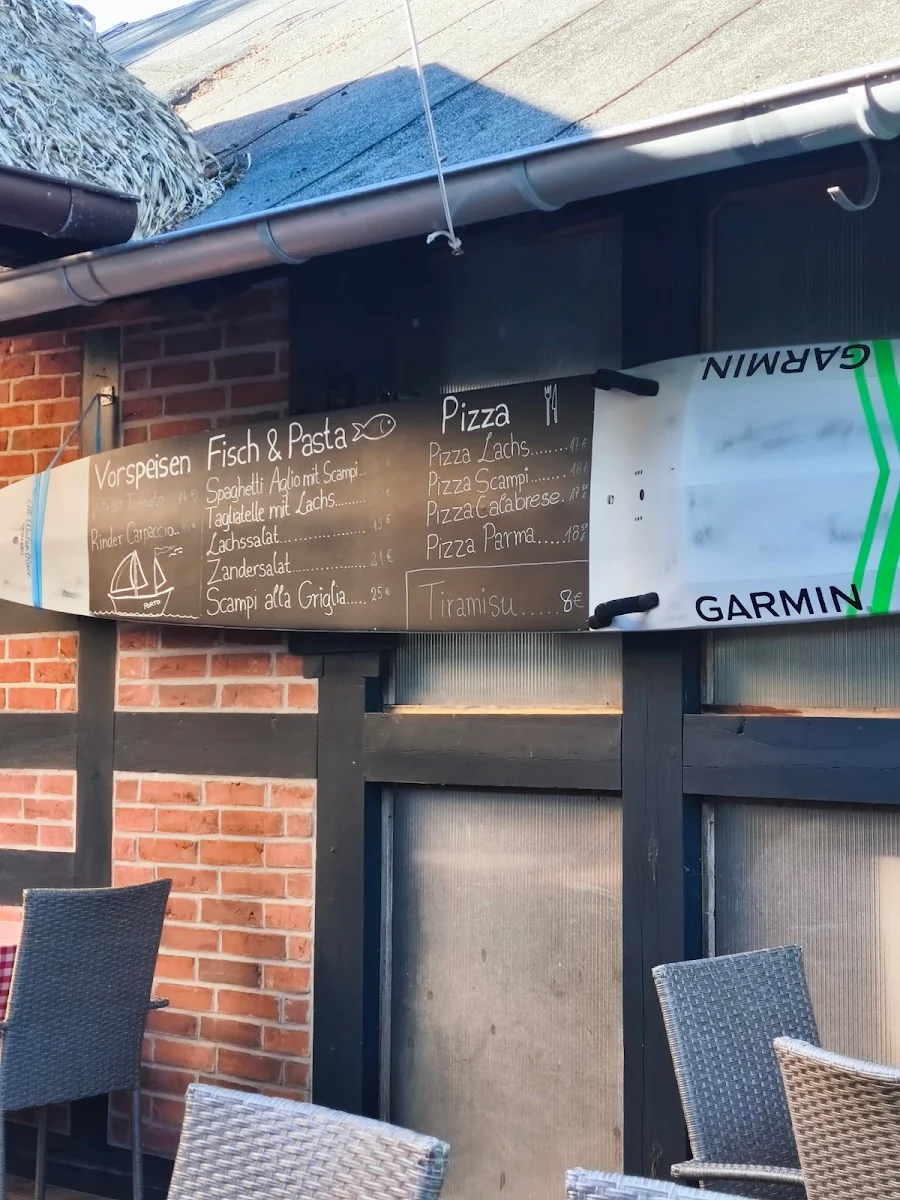 Vorspeisen
Tomate
Rinder Carpaccio..
PORTO
Fisch & Pasta
Spaghetti Aglio mit Scampi...
Tagliatelle mit Lachs........
Lachssalat................
Zandersalat 21€
Scampi alla Griglia..... 25€
Pizza
Pizza Lachs.......
Pizza Scampi.......
Pizza Calabrese.
Pizza Parma.....
Tiramisu......8€
GARMIN
GARMIN